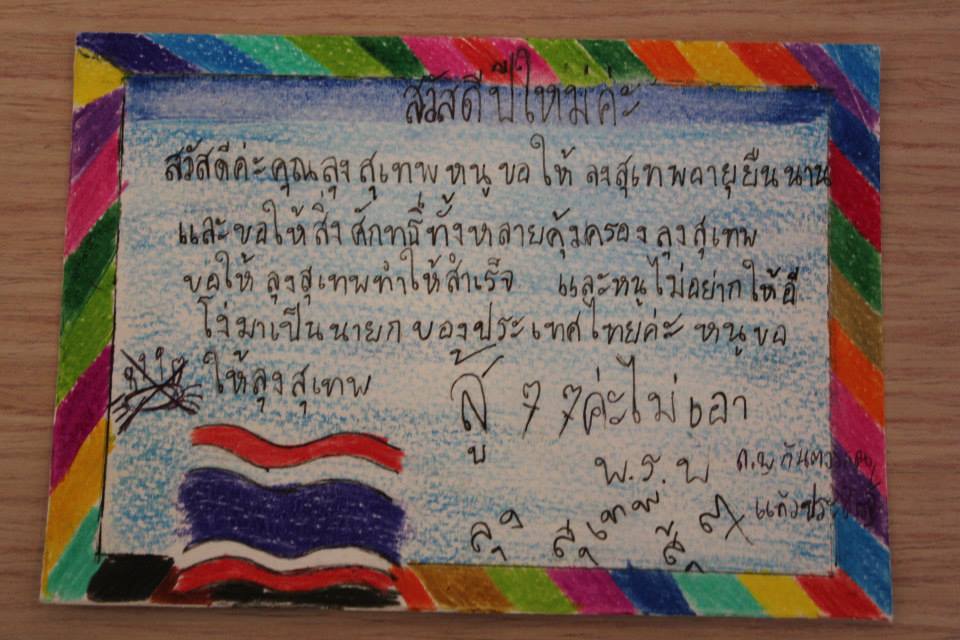 สวัสดีปีใหม่ค่ะ
สวัสดีค่ะคุณลุงสุเทพหนูขอให้ ลงสุเทพอายุยืนนาน
และขอให้สิ่งศักทธิ์ทั้งหลายคุ้มครองลุงสุเทพ
ขอให้ ลุงสุเทพทำให้สำเร็จ และหนูไม่อยากให้อี
โง่มาเป็นนายกของประเทศไทยค่ะ หนูขอ
ให้ลุงสุเทพ สู้ ๆ ๆ ค่ะไม่เอา
พ.ร.บ
ลุง สุเทพ สู้ ๆ